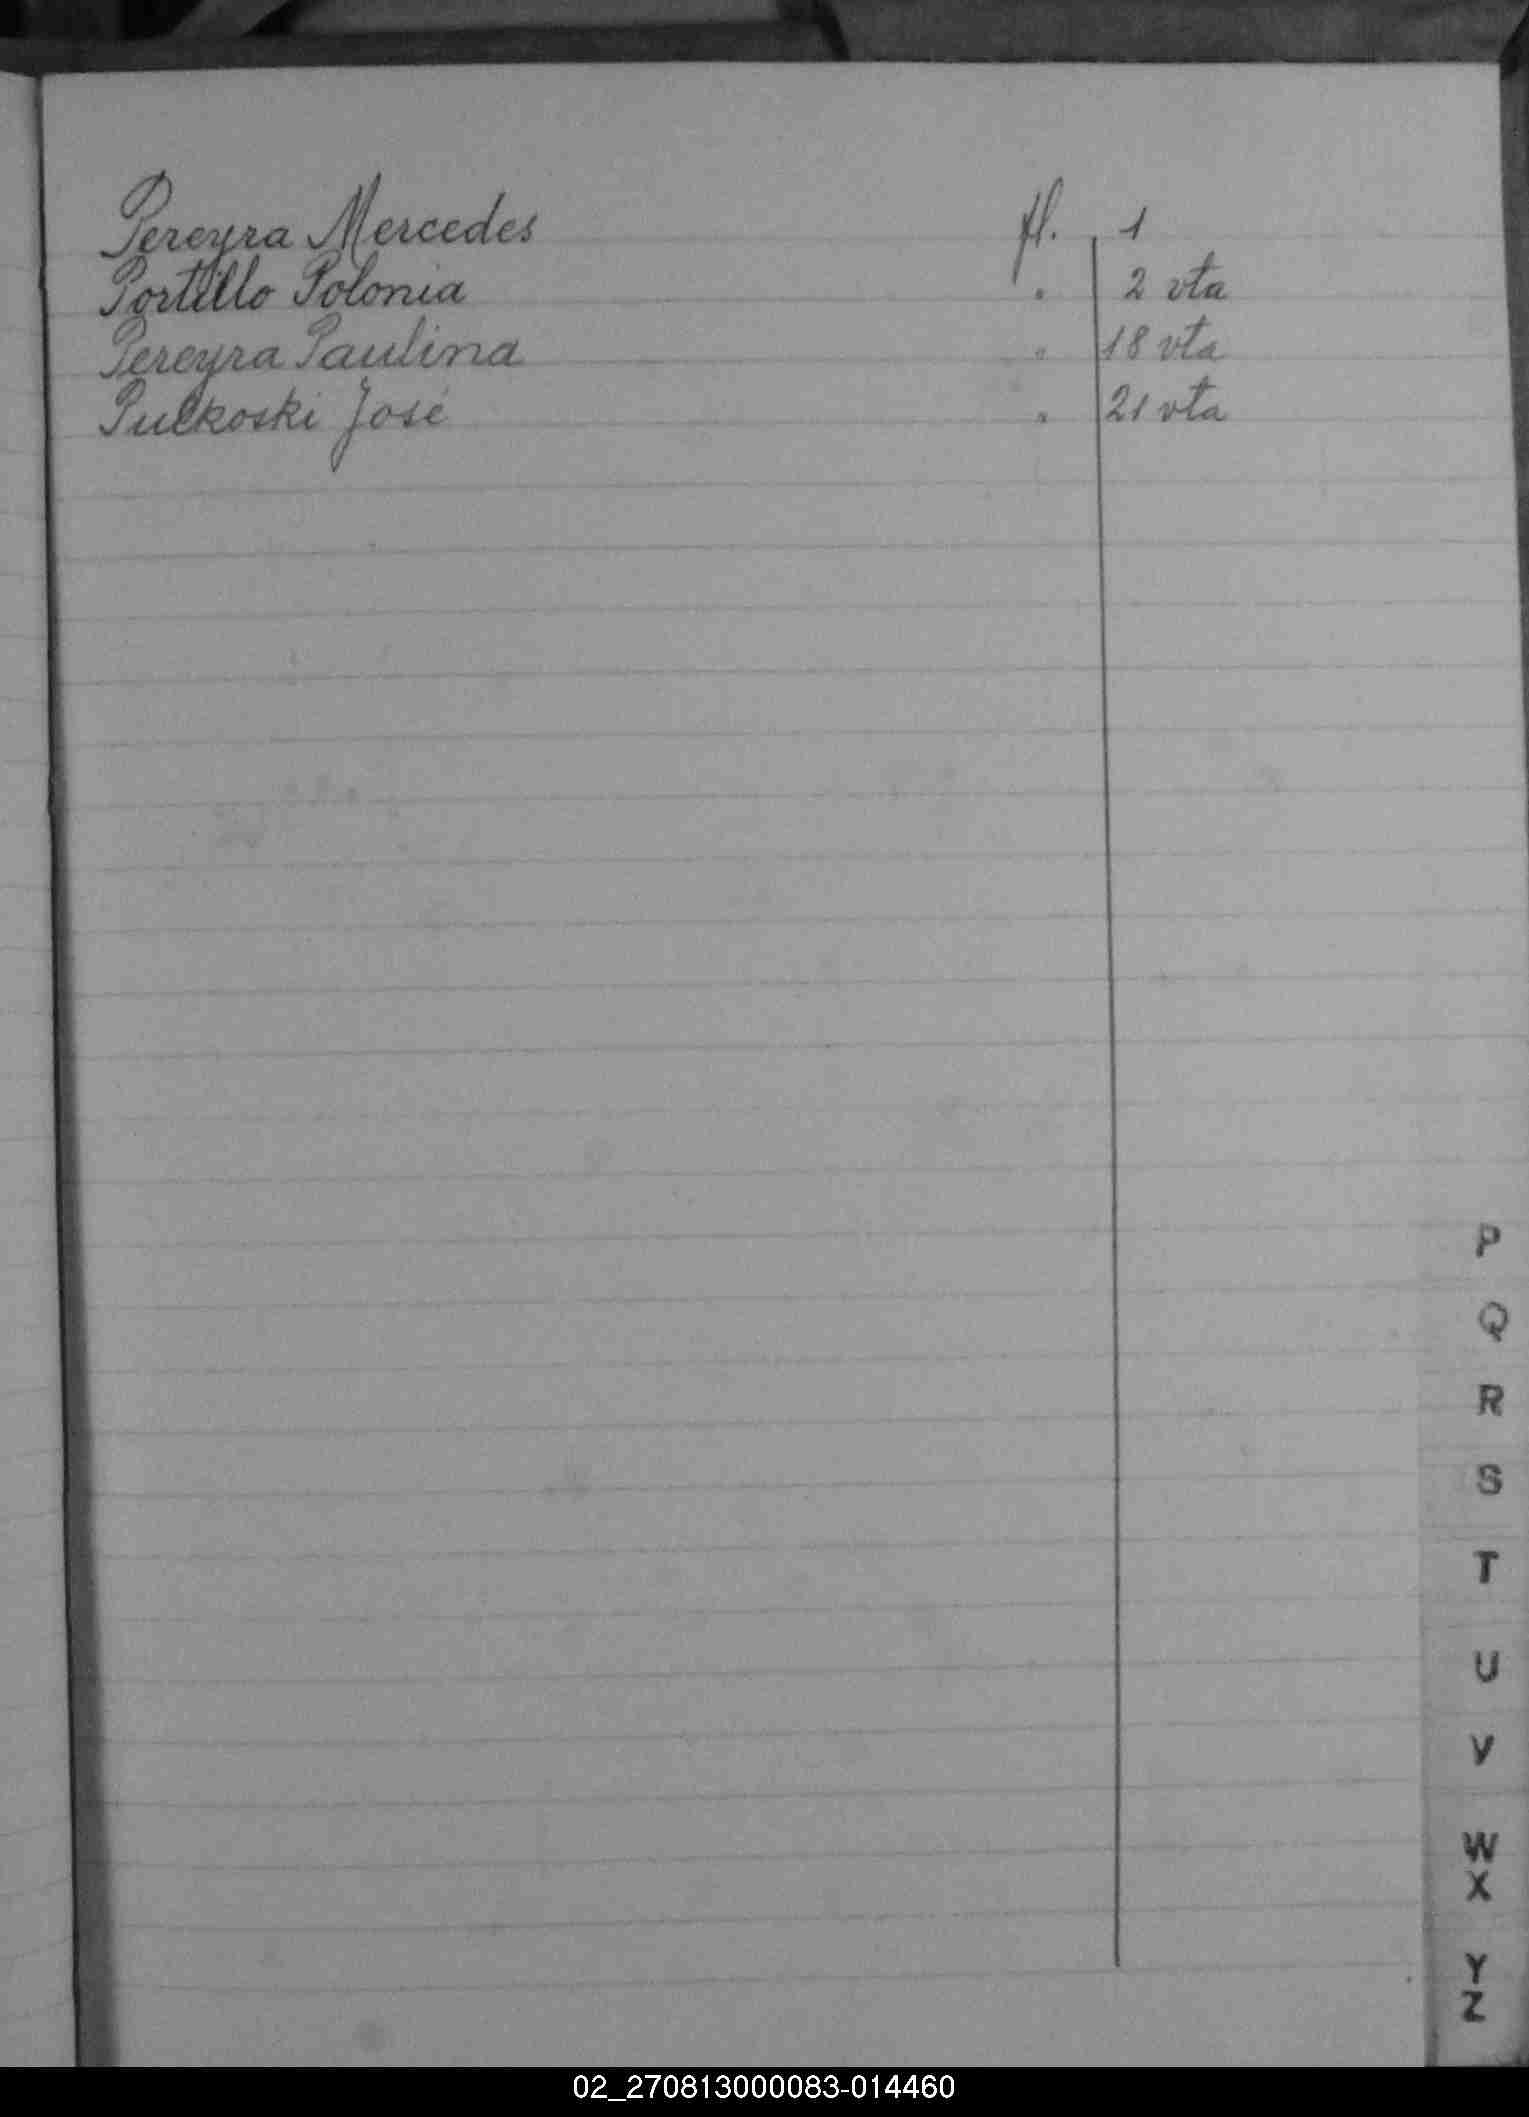 Pereyra Mercedes fl. 1
Portillo Polonia " 2 vta
Pereyra Paulina " 18 vta
Pulkoski José " 21 vta
P
Q
R
S
T
U
V
W
X
Y
Z
02_270813000083-014460